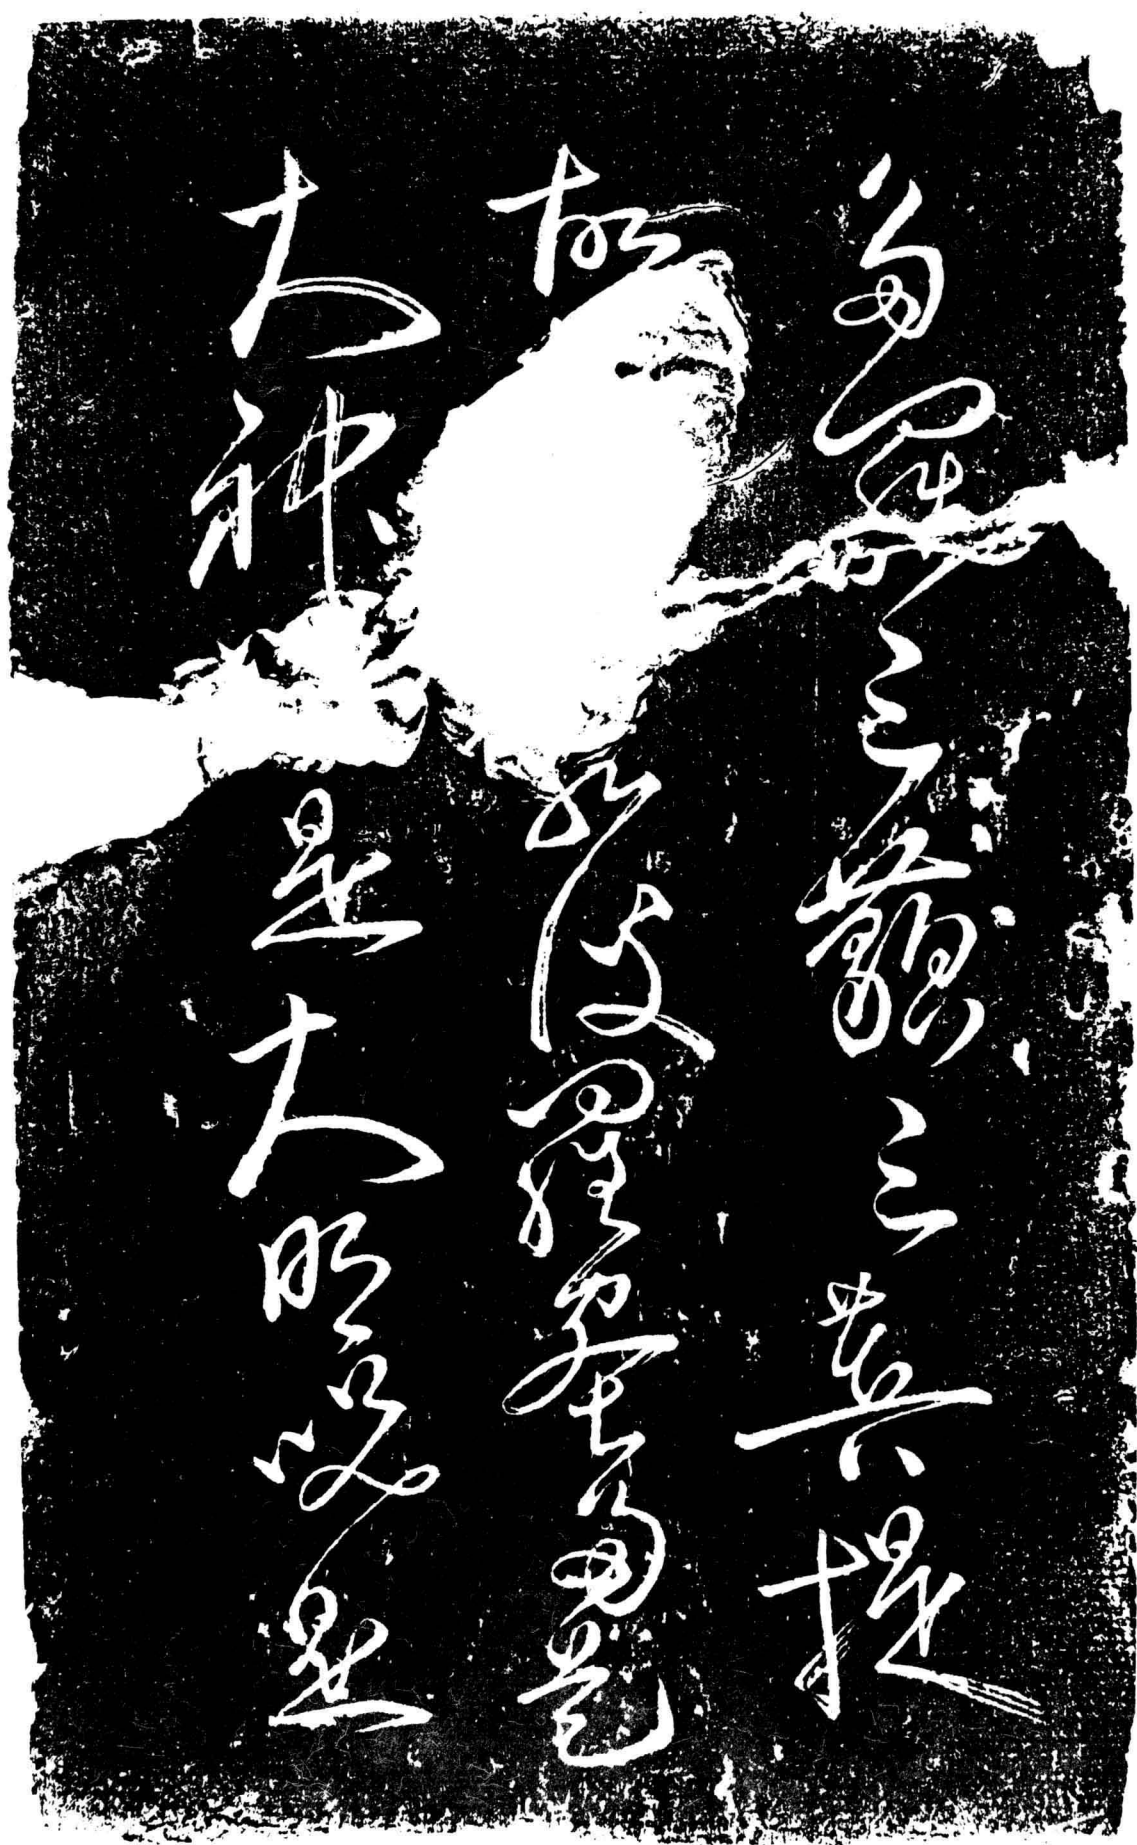 多羅三藐三菩提
故若波羅蜜多是
大神是大明呪是